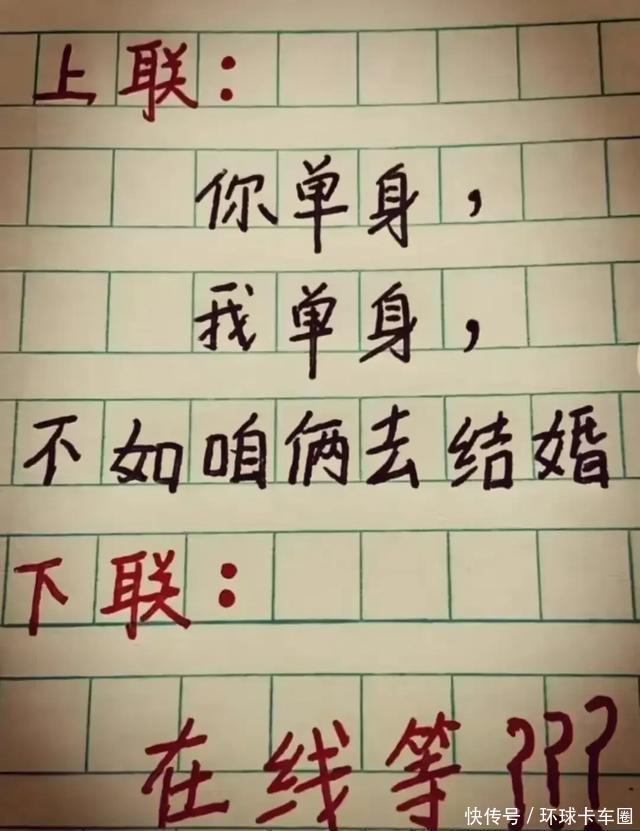 上联：
你单身，
我单身，
不如咱俩去结婚
下联：
在线等???
快传号／环球卡车圈